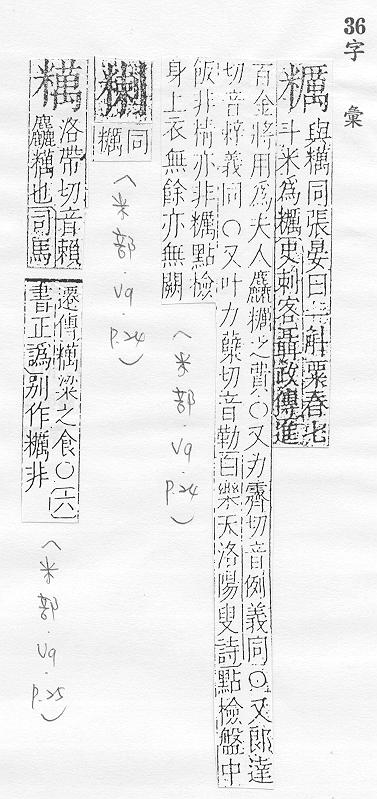 36字彙
糲 與䊪同張晏曰一斛粟舂七
斗米爲糲史刺客聶政傳進
百金將用爲夫人麤糲之費○又力霽切音例義同○又郎達
切音辣義同○又叶力櫱切音勒白樂天洛陽叟詩點檢盤中
飯非精亦非糲點檢
身上衣無餘亦無闕
(米部.V9.P.24)
同糲
(米部.V9.P.24)
䊪 洛帶切音賴
麤䊪也司馬
遷傳䊪粱之食○六
書正譌別作糲非
(米部.V9.P.25)